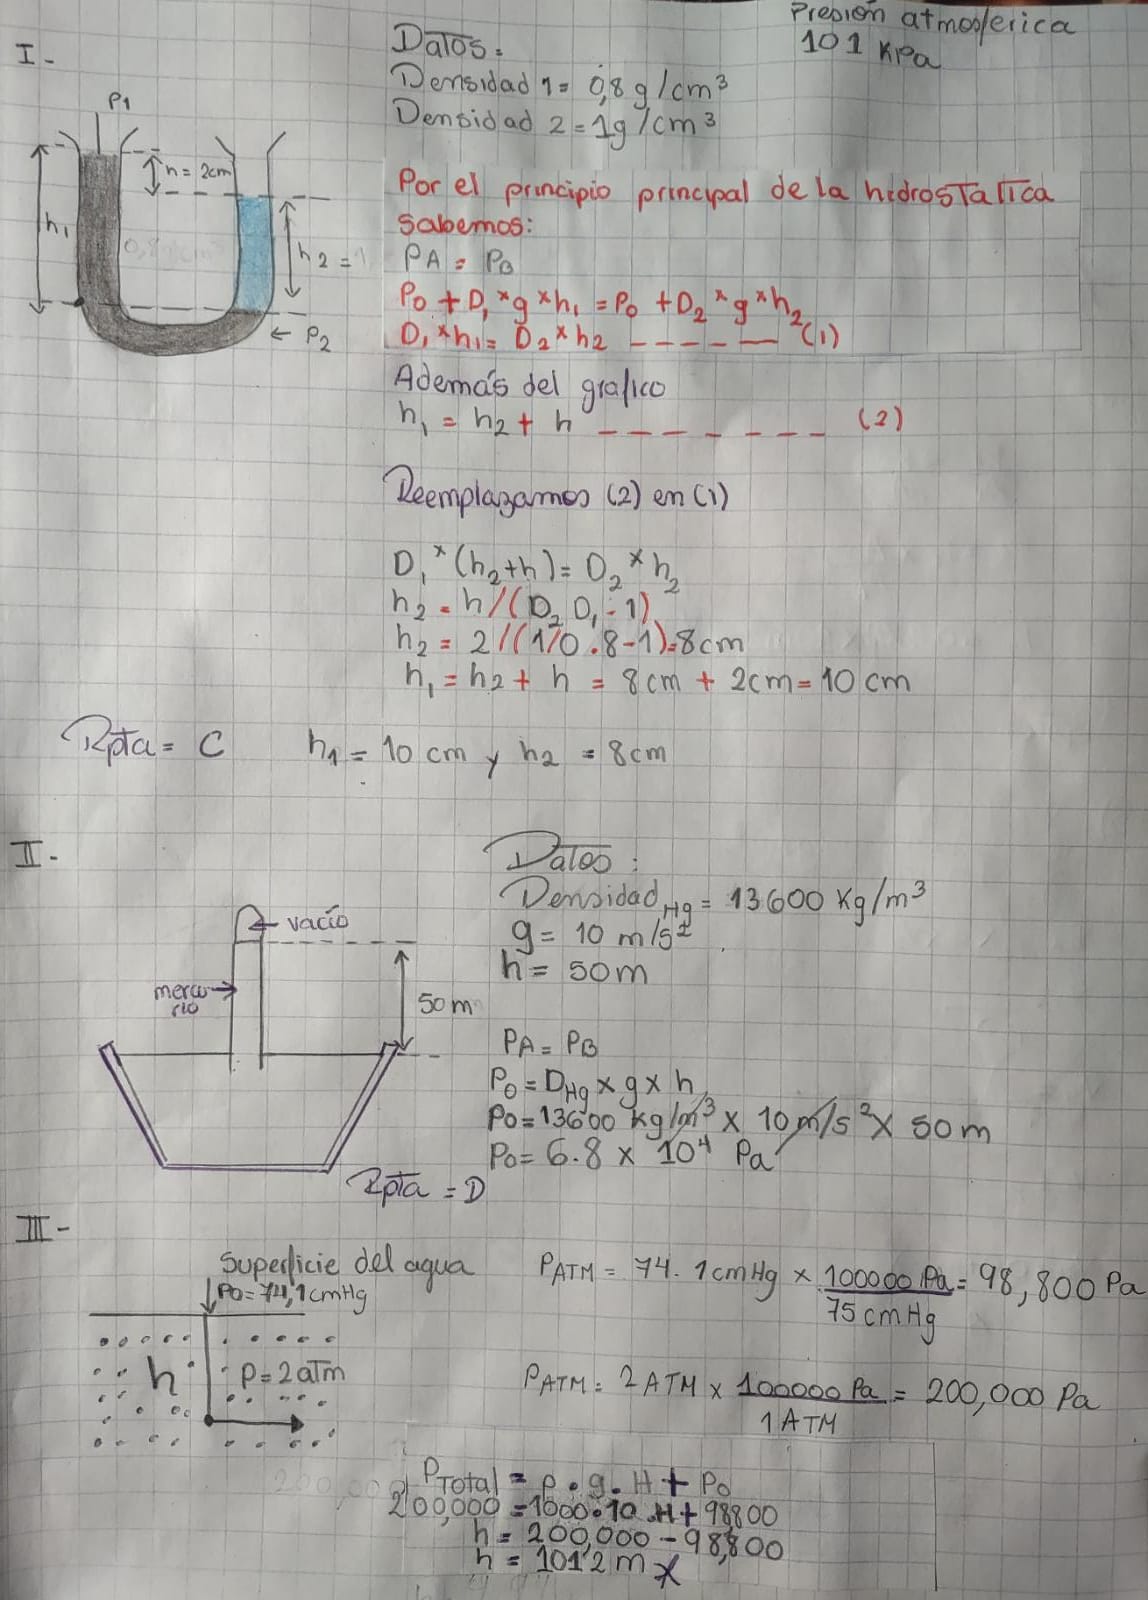 Presión atmosferica
101 KPa
I-
Datos:
Densidad 1= 0,8 g/cm³
Densidad 2 = 1g/cm³
P1
h = 2cm
h₁
h₂ =
P₂
Por el principio principal de la hidrosTaTica
sabemos:
PA = PB
Po + D₁ * g * h₁ = Po + D₂ * g * h₂
D₁ * h₁ = D₂ * h₂ _ _ _ _ _ (1)
Además del grafico
h₁ = h₂ + h _ _ _ _ _ _ _ (2)
Reemplazamos (2) en (1)
D₁ * (h₂+h) = D₂ * h₂
h₂ = h/(D₂ D₁ - 1)
h₂ = 2/(1/0.8-1)=8cm
h₁ = h₂ + h = 8cm + 2cm = 10 cm
Rpta = C h₁ = 10 cm y h₂ = 8cm
II-
Datos:
Densidad Hg = 13600 Kg/m³
g = 10 m/s²
h = 50m
vacío
mercu
rio
50 m
PA = PB
Po = DHg x g x h
Po = 13600 kg/m³ x 10 m/s² x 50 m
Po = 6.8 x 10⁴ Pa
Rpta = D
III-
Superficie del agua
Po = 74,1 cmHg
h
P = 2 aTm
PATM = 74.1 cmHg x 100000 Pa = 98,800 Pa
75 cmHg
PATM = 2 ATM x 100000 Pa = 200,000 Pa
1 ATM
PTotal = ρ . g . H + Po
200,000 = 1000.10.H + 98800
h = 200,000 - 98,800
h = 101'2 m x